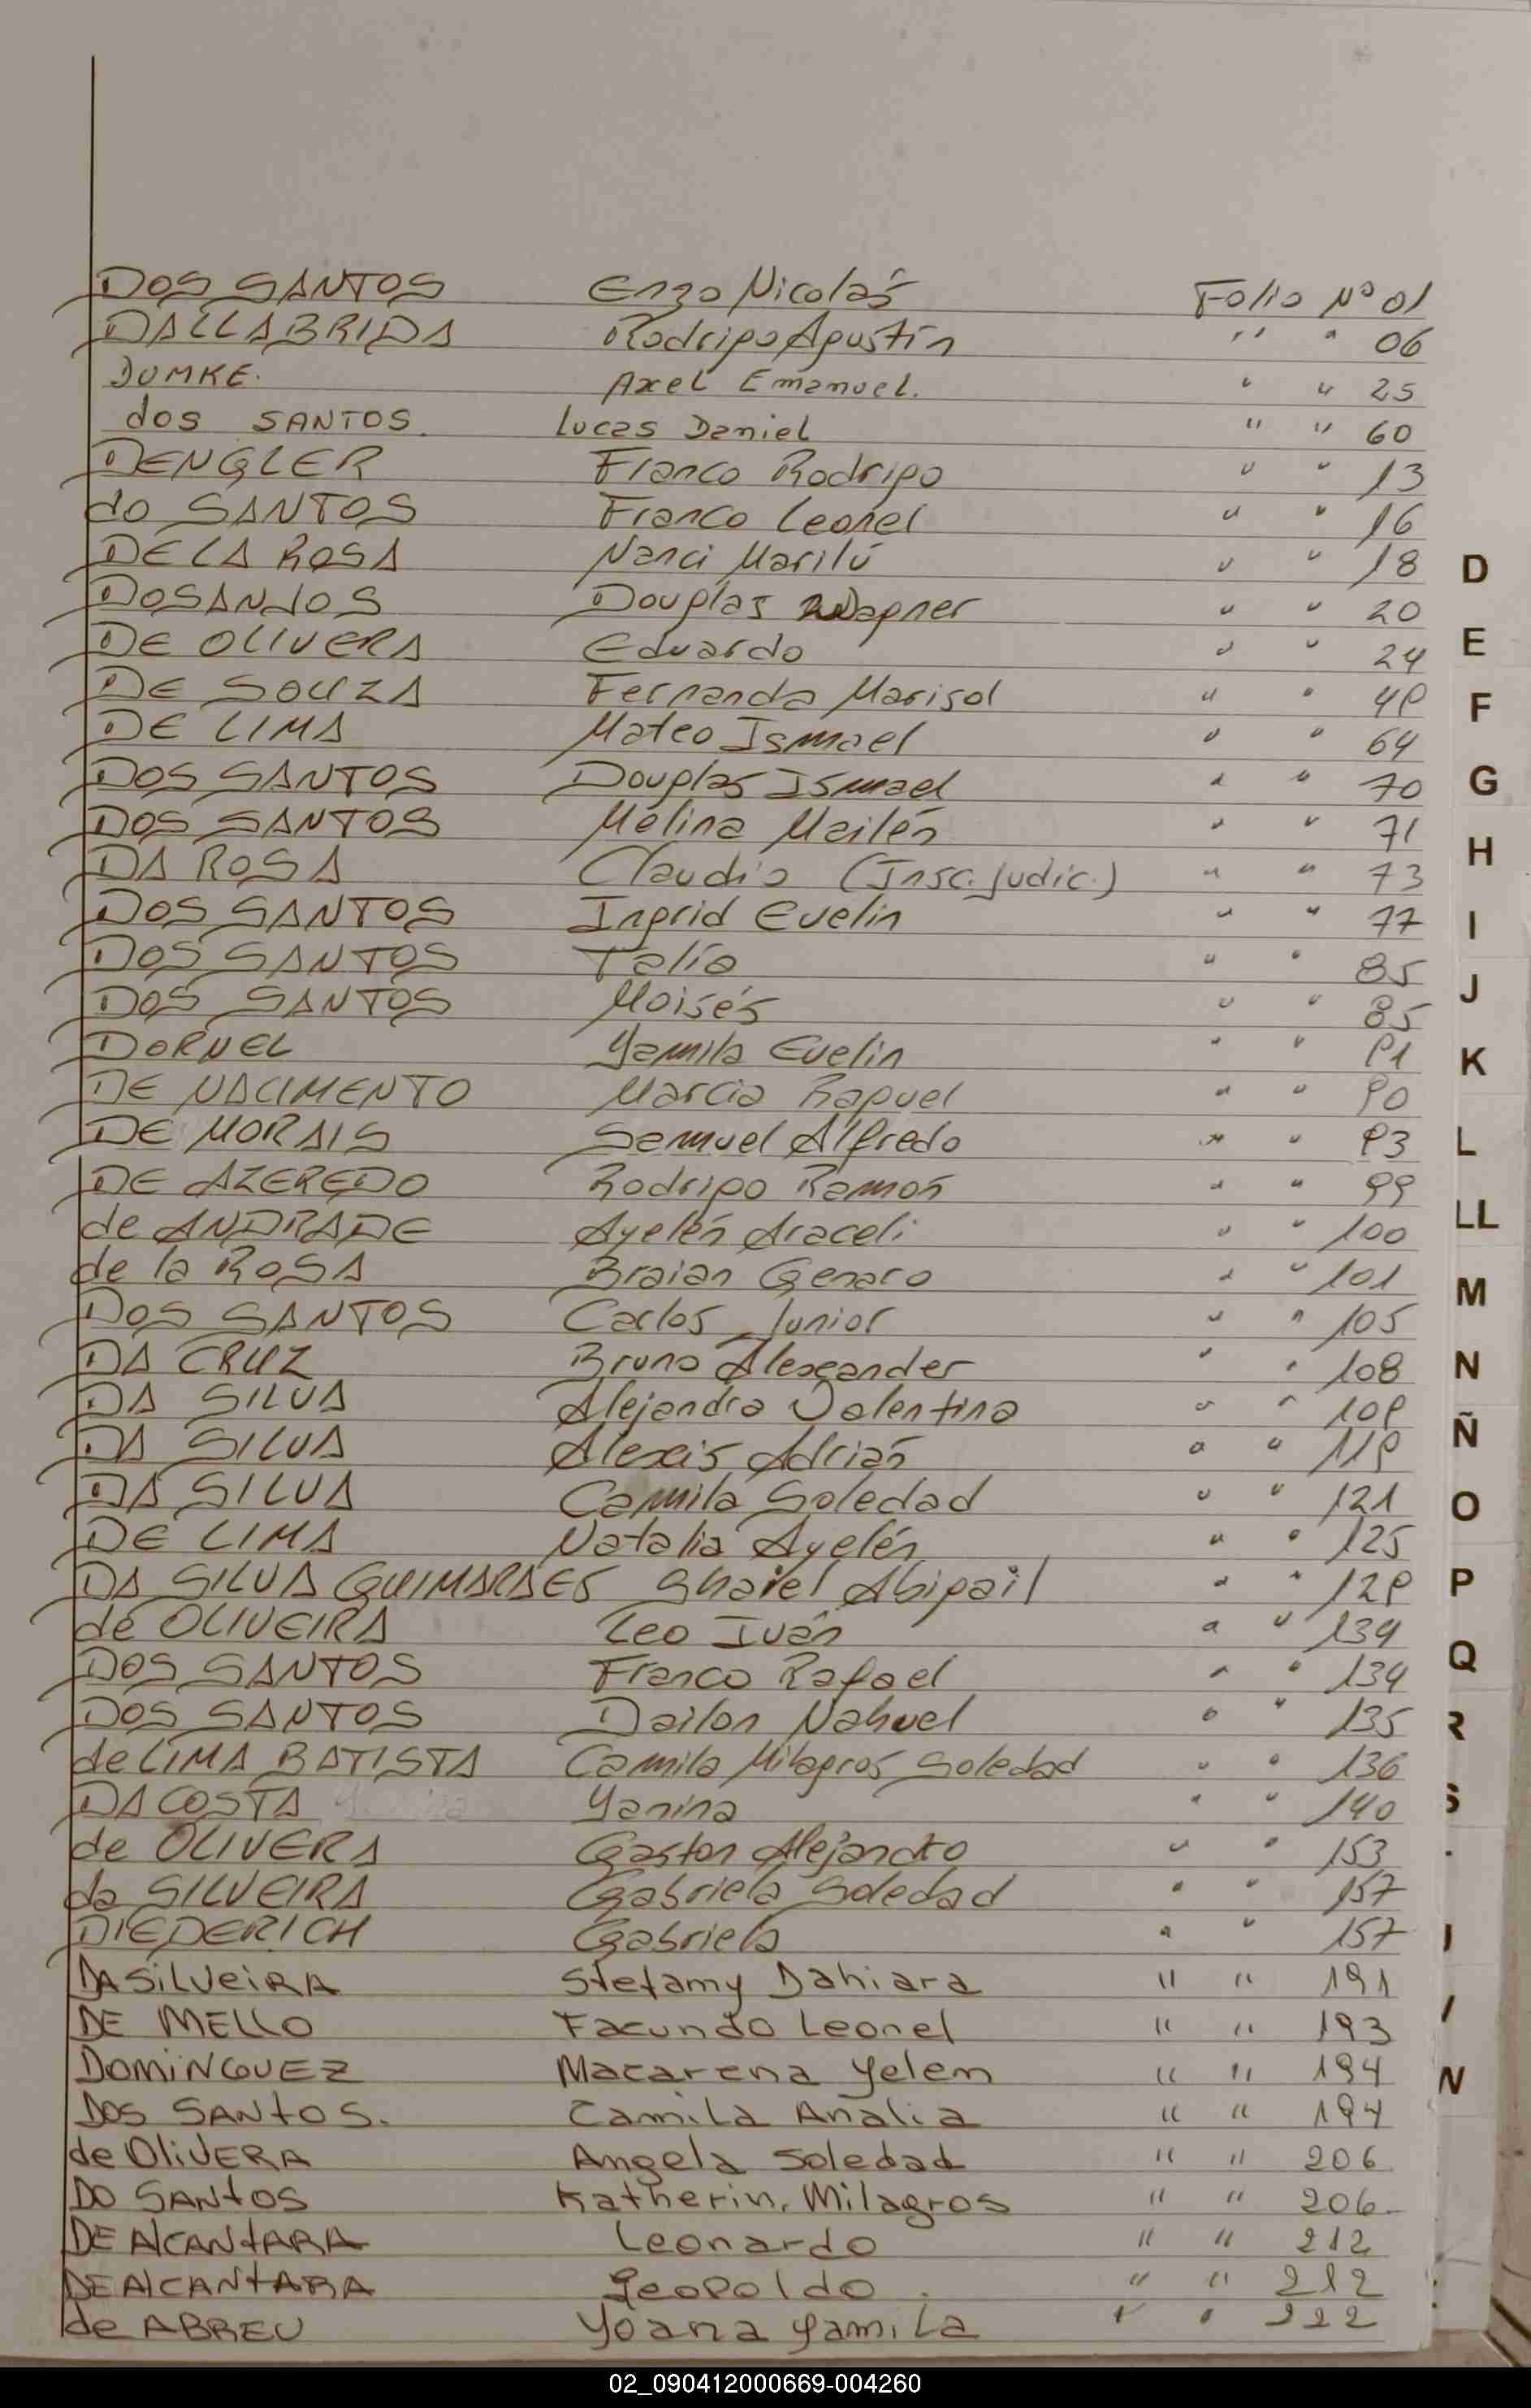 DOS SANTOS Enzo Nicolás Folio Nº 01
DALLABRIDA Rodrigo Agustín " " 06
DUMKE. Axel Emanuel. " " 25
dos SANTOS. Lucas Daniel " " 60
DENGLER Franco Rodrigo " " 13
do SANTOS Franco Leonel " " 16
DE LA ROSA Nanci Marilú " " 18
DOSANJOS Douglas Wagner " " 20
DE OLIVERA Eduardo " " 24
DE SOUZA Fernanda Marisol " " 49
DE LIMA Mateo Ismael " " 64
DOS SANTOS Douglas Ismael " " 70
DOS SANTOS Melina Mailén " " 71
DA ROSA Claudio (Insc. Judic.) " " 73
DOS SANTOS Ingrid Evelin " " 77
DOS SANTOS Talía " " 85
DOS SANTOS Moisés " " 85
DORNEL Yamila Evelin " " 91
DE NACIMENTO Marcia Raquel " " 90
DE MORAIS Samuel Alfredo " " 93
DE AZEREDO Rodrigo Ramón " " 99
de ANDRADE Ayelén Araceli " " 100
de la ROSA Braian Genaro " " 101
DOS SANTOS Carlos Junior " " 105
DA CRUZ Bruno Alexander " " 108
DA SILVA Alejandra Valentina " " 109
DA SILVA Alexis Adrián " " 119
DA SILVA Camila Soledad " " 121
DE LIMA Natalia Ayelén " " 125
DA SILVA GUIMARAES Shaiel Abigail " " 129
de OLIVEIRA Leo Iván " " 134
DOS SANTOS Franco Rafael " " 134
DOS SANTOS Dailon Nahuel " " 135
de LIMA BATISTA Camila Milagros Soledad " " 136
DA COSTA Yanina " " 140
de OLIVERA Gaston Alejandro " " 153
da SILVEIRA Gabriela Soledad " " 157
DIEDERICH Gabriela " " 157
DA SilVeiRA Stefamy Dahiara " " 191
DE MELLO Facundo Leonel " " 193
DOMINGUEZ Macarena Yelem " " 194
DOS SANtOS. Camila Analia " " 194
de OliVERA Angela Soledad " " 206
DO SANtOS Katherin, Milagros " " 206
DE AlCANtARA Leonardo " " 212
DE AlCANtARA Leopoldo . " " 212
de ABREU Yoana Yamila " " 222
D
E
F
G
H
I
J
K
L
LL
M
N
Ñ
O
P
Q
R
S
N
02_090412000669-004260